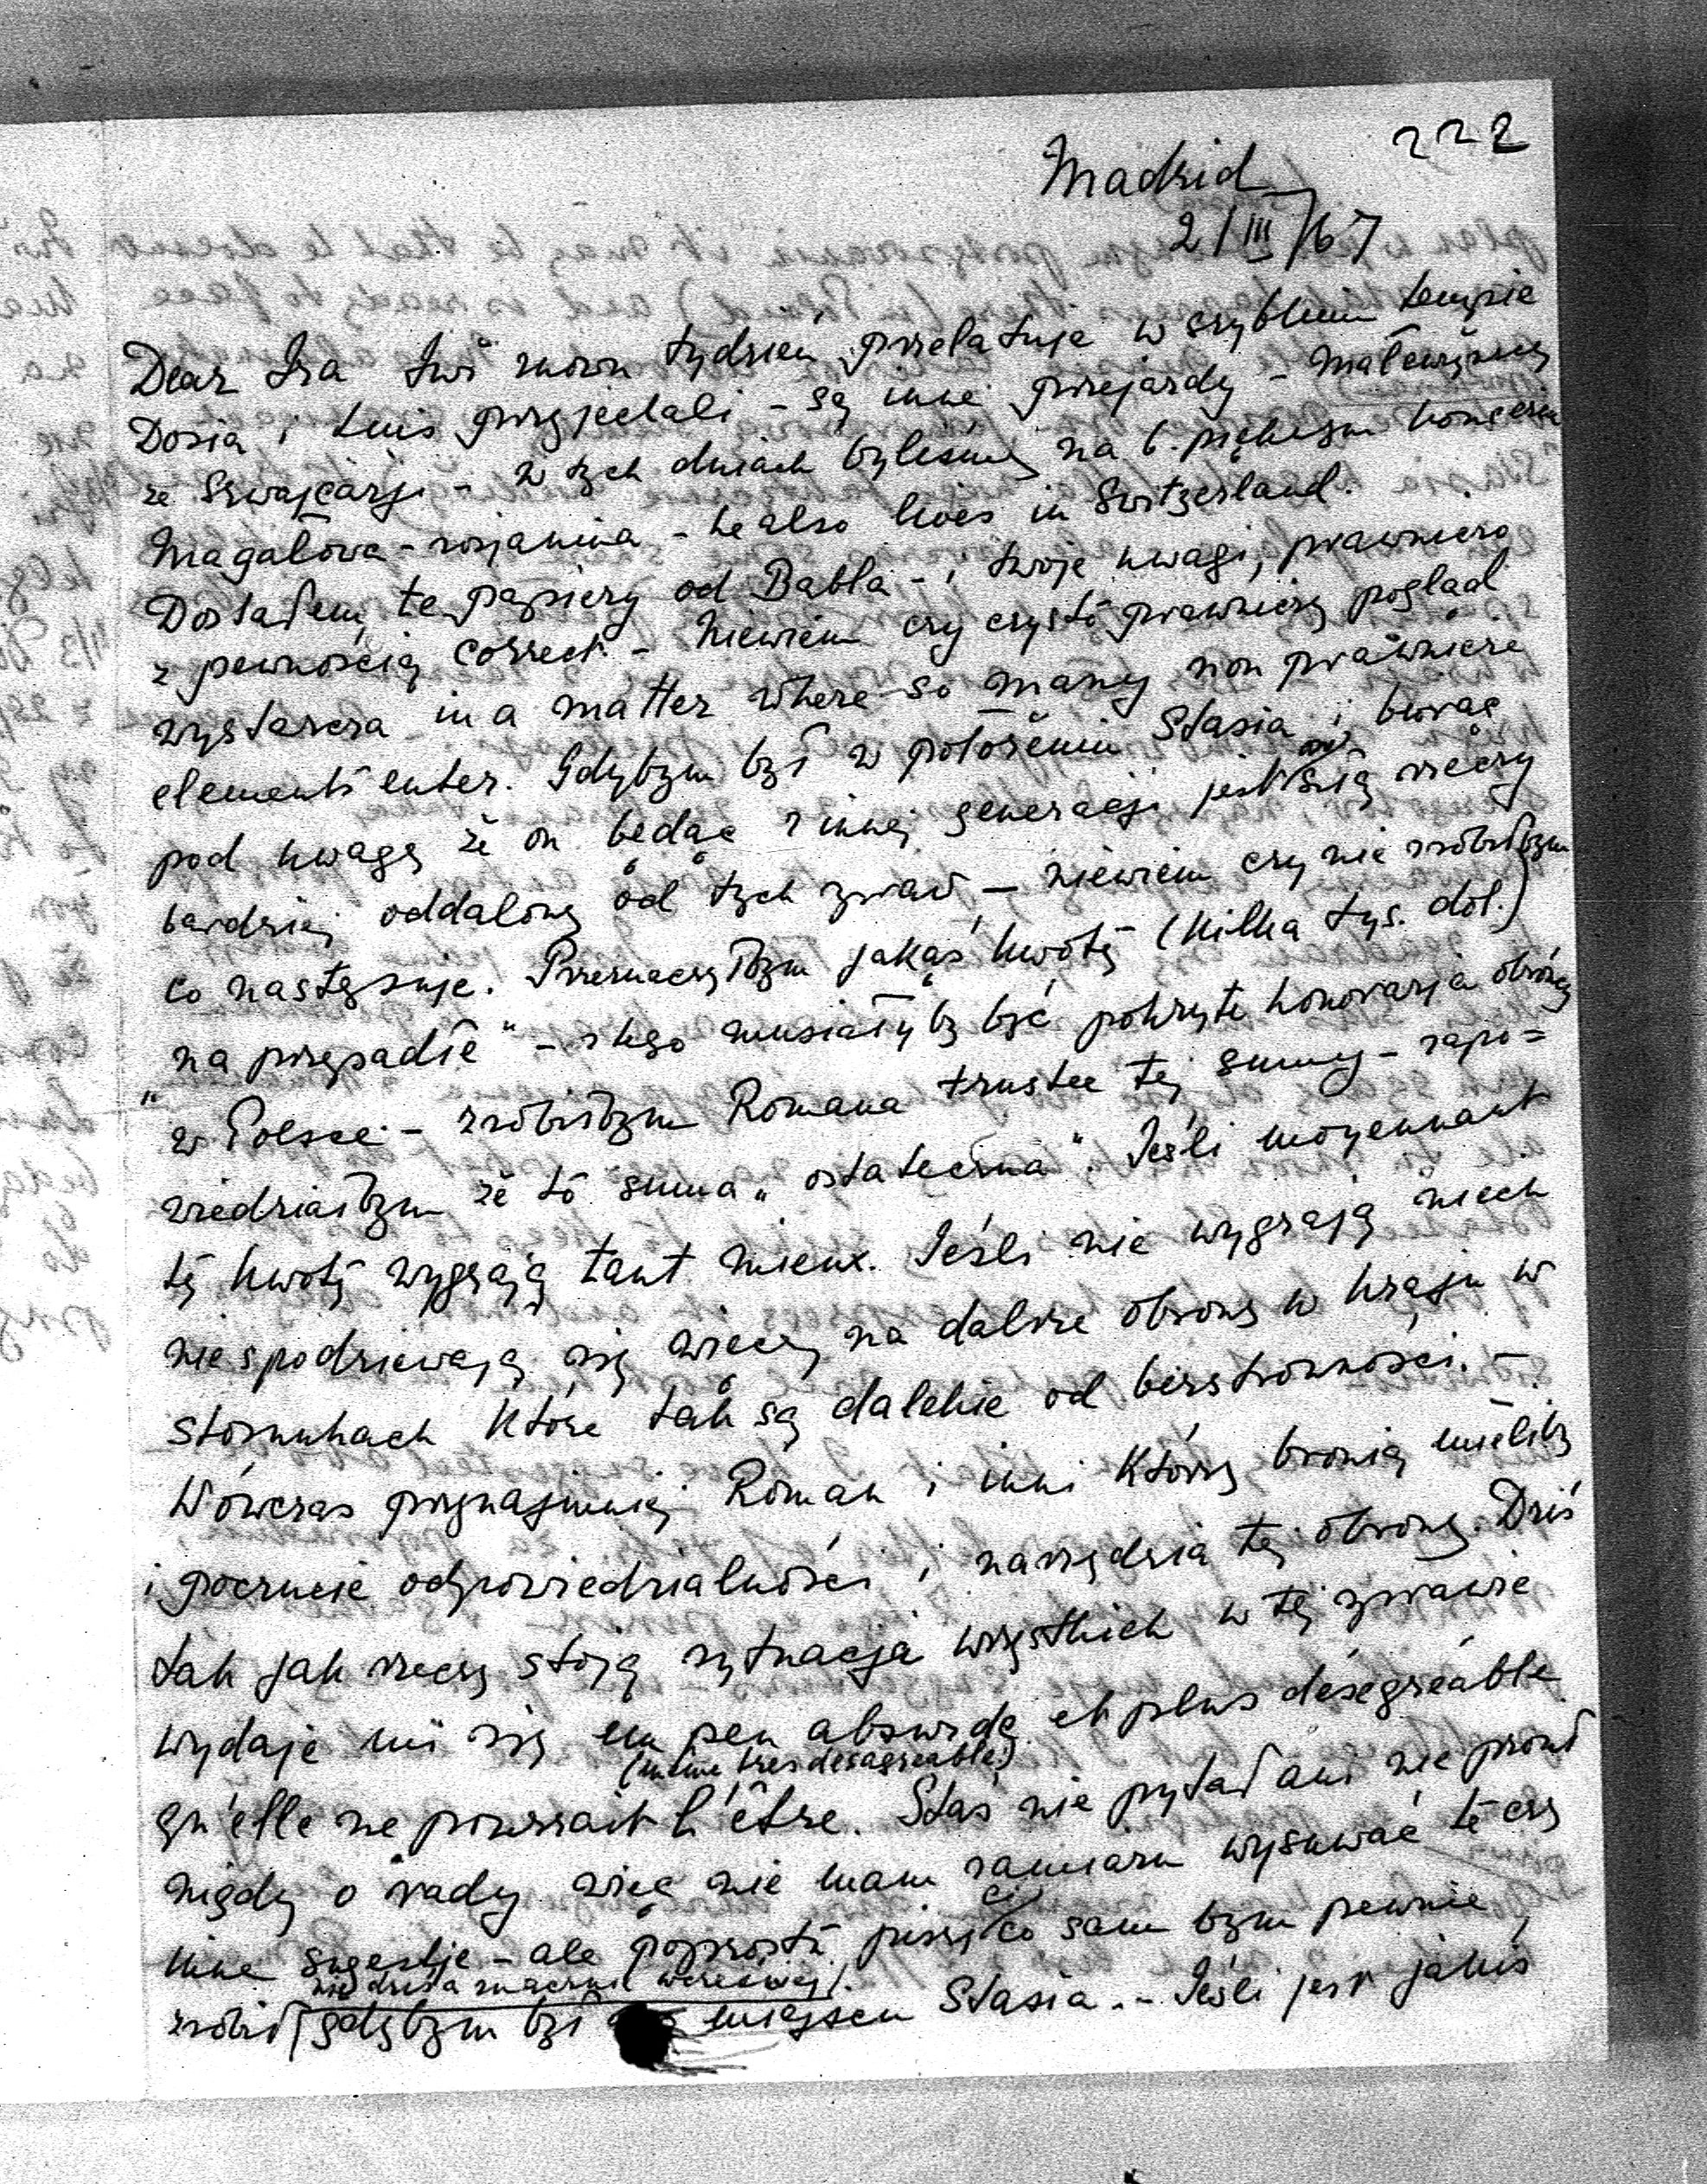 222
Madrid
2/III/67
Dear Isa Już znowu tydzień przelatuje w szybkiem tempie
Dosia i Luis przyjechali - są inne przejazdy - Małewscy
ze Szwajcarji - w tych dniach byliśmy na b. pięknym koncercie
Magalowa - rosjanina - he also lives in Switzerland.
Dostałem te papiery od Babla - i twoje uwagi, prawniczo
z pewnością correct - Niewiem czy czysto prawniczy pogląd
wystarcza in a matter where so many non prawnicze
elements enter. Gdybym był w położeniu Stasia i biorąc
pod uwagę że on będąc z innej generacji jest siłą rzeczy
bardziej oddalony od tych spraw - niewiem czy nie zrobiłbym
co następuje. Przeznaczyłbym jakąś kwotę (kilka tys. dol.)
"na przepadłe" - z tego musiałyby być pokryte honorarja obrońcy
w Polsce - zrobiłbym Romana trustee tej sumy - zapo=
wiedziałbym że to suma "ostateczna". Jeśli moyennant
tę kwotę wygrają tant mieux. Jeśli nie wygrają niech
nie spodziewają się więcej na dalsze obrony w kraju w
stosunkach które tak są dalekie od bezstronności. -
Wówczas przynajmniej Roman i inni którzy bronią mieliby
i poczucie odpowiedzialności i narzędzia tej obrony. Dziś
tak jak rzeczy stoją sytuacja wszystkich w tej sprawie
wydaje mi się un peu absurde et plus désegréable
(même tres desagreable)
qu'elle ne pourrait l'être. Staś nie pytał ani nie prosił
nigdy o rady więc nie mam zamiaru wysuwać te czy
inne sugestje - ale poprostu piszę ci co sam bym pewnie,
nie dziś a znacznie wcześniej
zrobił gdybym był miejscu Stasia. - Jeśli jest jakiś